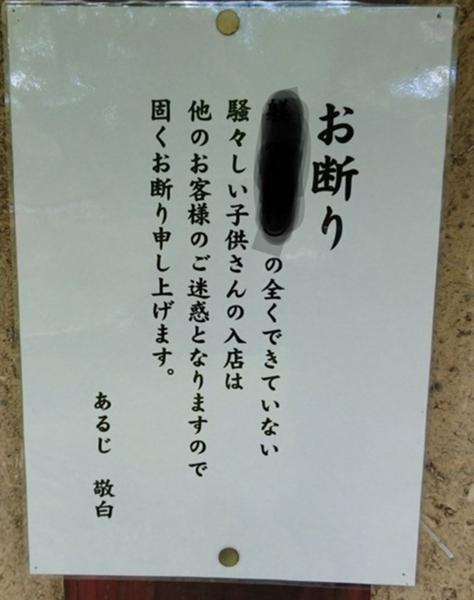 お断り
の全くできていない
騒々しい子供さんの入店は
他のお客様のご迷惑となりますので
固くお断り申し上げます。
あるじ 敬白